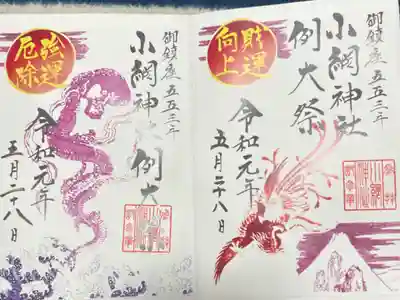 御鎮座五五三年
財運
向上
小網神社
例大祭
令和元年
五月二十八日
御鎮座五五三年
強運
厄除
小網神社例大
令和元年
五月二十八日